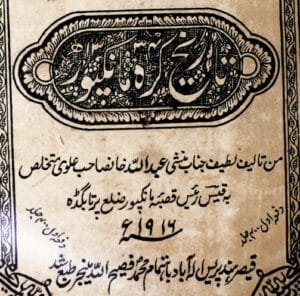 تاریخ کڑہ مانکپور
من تالیف لطیف جناب منشی عبداللہ خانصاحب علوی متخلص
بہ قیس رئیس قصبہ مانکپور ضلع پرتابگڈہ
۱۹۱۶ء
دفعہ اول
جلد
دفعہ اول
جلد
قیصر ہند پریس الہ آباد باہتمام محمد فصیح اللہ منیجر طبع شد